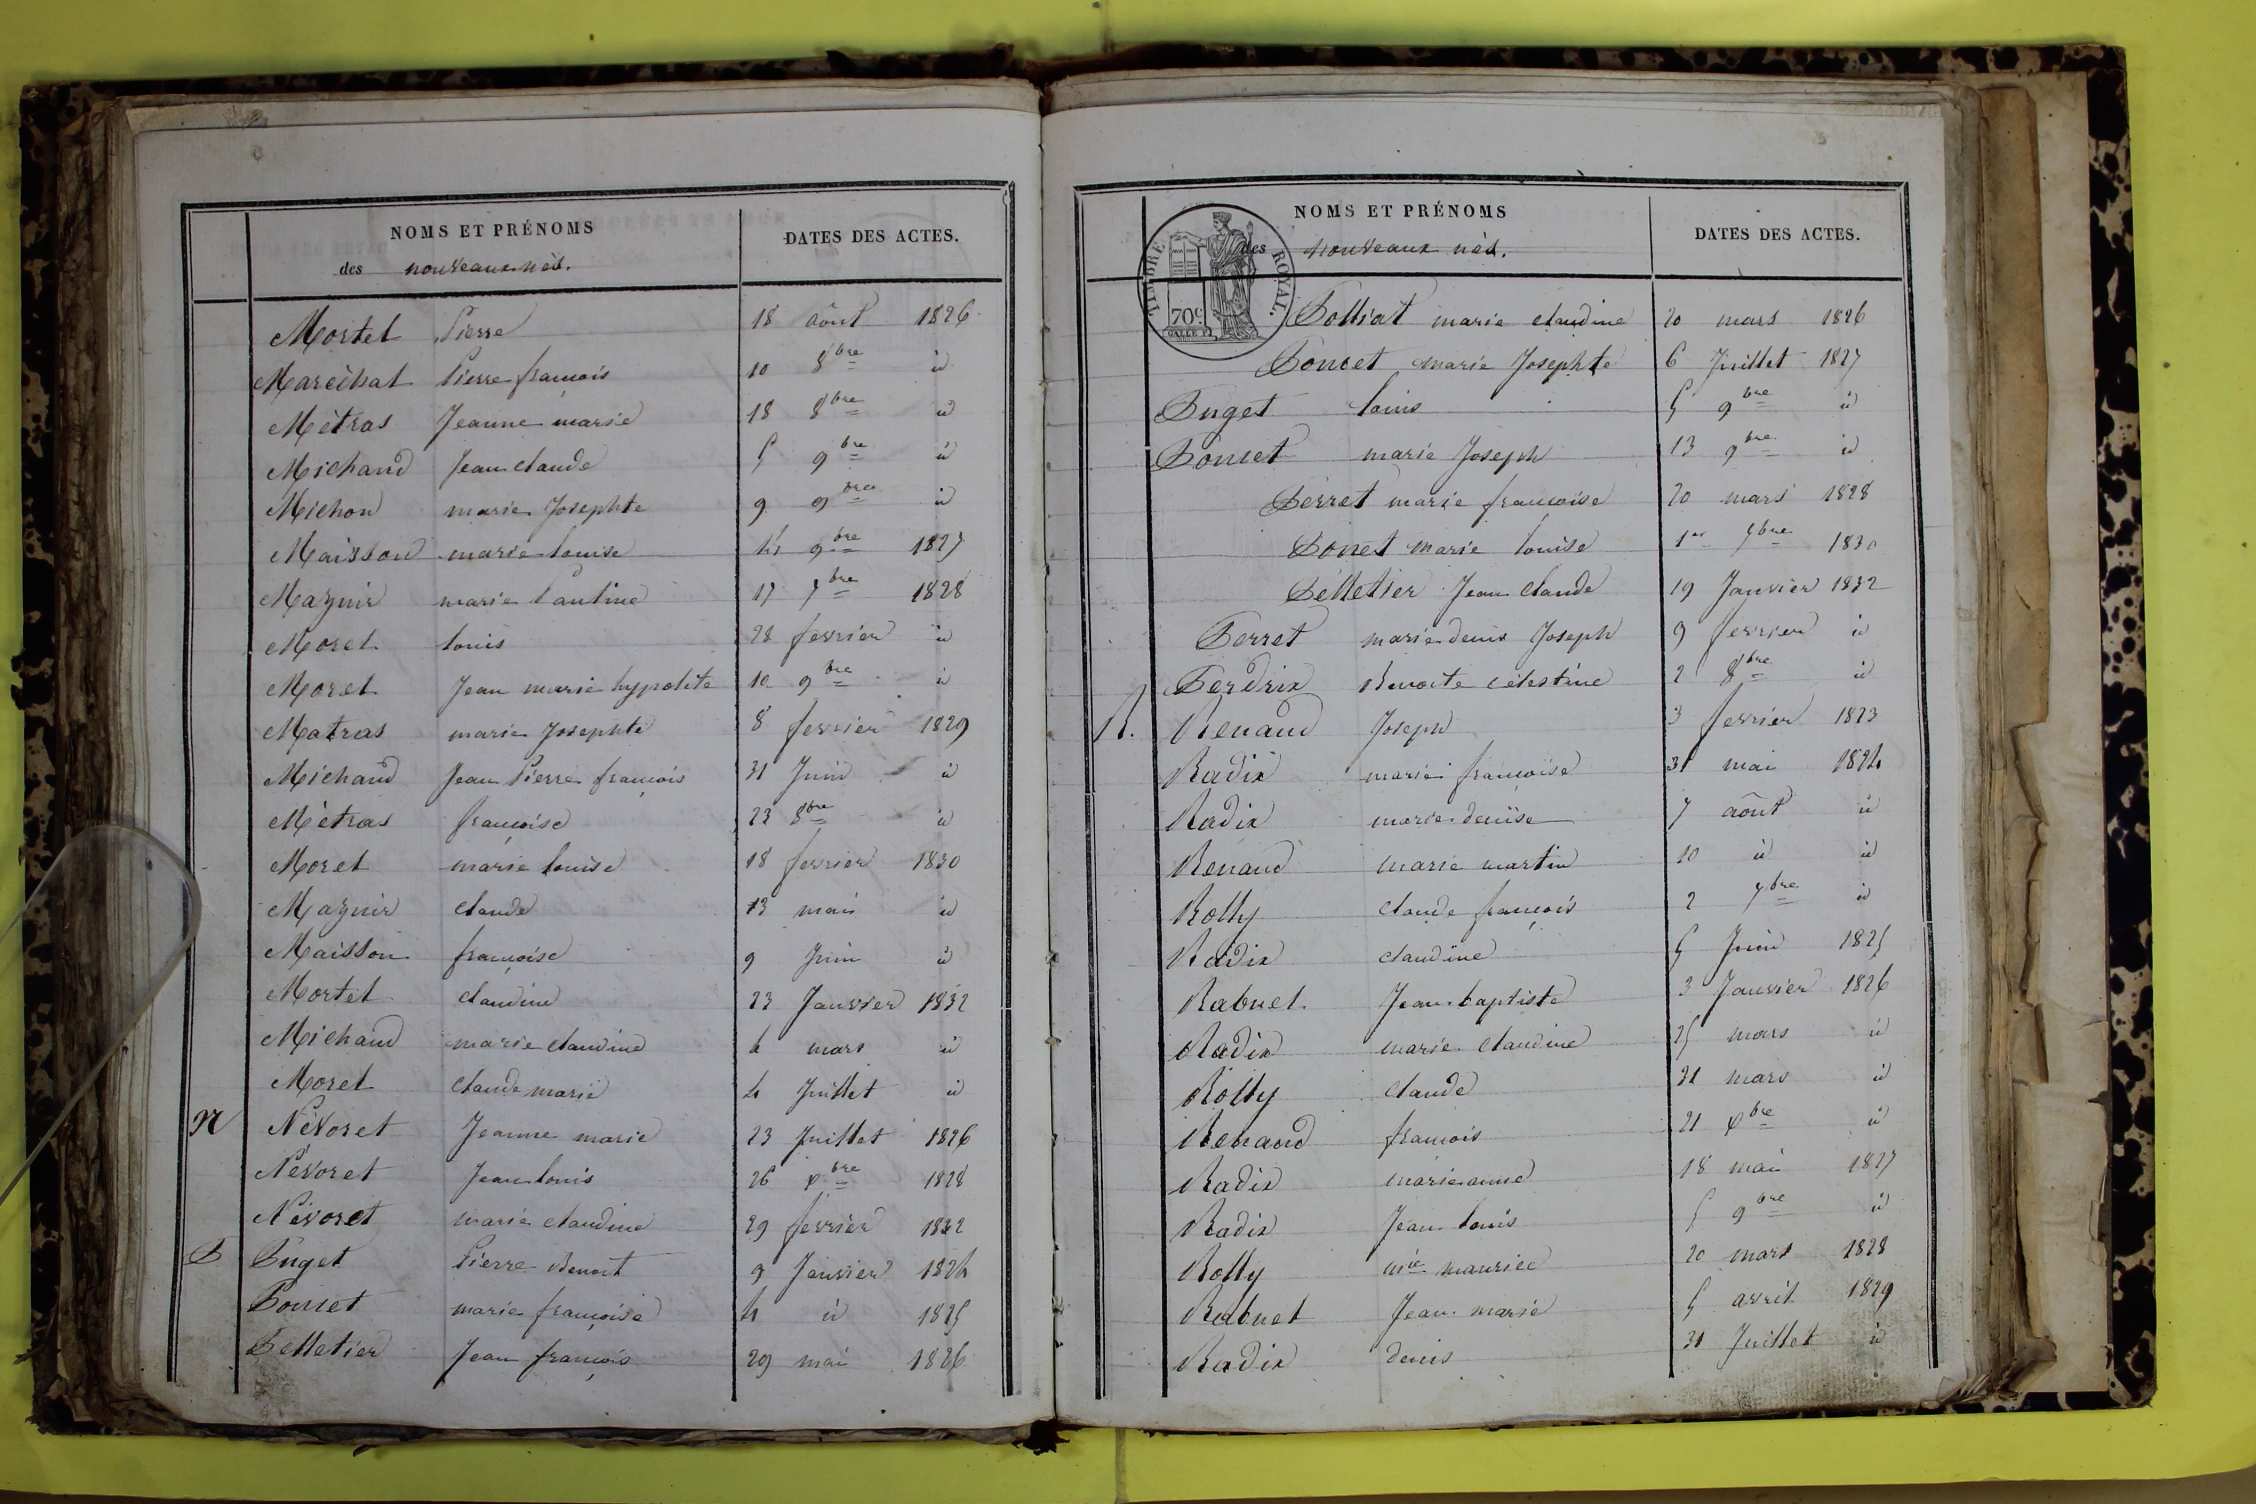 NOMS ET PRÉNOMS
des nouveaux nés.
DATES DES ACTES.
Mortel Pierre 18 août 1826
Maréchal Pierre françois 10 8bre id
Métras Jeanne marie 18 8bre id
Michaud Jean claude 5 9bre id
Michon marie Josephte 9 9bre id
Maisson marie louise 9bre 1827
Maznir marie Pauline 17 7bre 1828
Morel louis 28 fevrier id
Morel Jean marie hypolite 10 9bre id
Matras marie Josephte 8 fevrier 1829
Michaud Jean Pierre françois 31 Juin id
Métras françoise 23 8bre id
Morel marie louise 18 fevrier 1830
Maznir claude 13 mai id
Maisson françoise 9 Juin id
Mortel claudine 23 Janvier 1832
Michaud marie claudine 4 mars id
Morel claude marie 4 Juillet id
N Névoret Jeanne marie 23 Juillet 1826
Névoret Jean louis 26 Xbre 1828
Névoret marie claudine 29 fevrier 1832
P Puget Pierre Benoit 9 Janvier 1824
Poncet marie françoise 4 id 1825
Pelletier Jean françois 29 mai 1826
NOMS ET PRÉNOMS
des nouveaux nés.
DATES DES ACTES.
TIMBRE ROYAL.
70c
Polliat marie claudine 20 mars 1826
Poncet marie Josephte 6 Juillet 1827
Puget louis 5 9bre id
Poncet marie Joseph 13 9bre id
Perret marie françoise 20 mars 1828
Poncet marie louise 1er 7bre 1830
Pelletier Jean claude 19 Janvier 1832
Perret marie denis Joseph 9 fevrier id
Perdrix Benoite célestine 2 8bre id
R. Renaud Joseph 3 fevrier 1823
Radix marie françoise 31 mai 1824
Radix marie denise 7 août id
Renaud marie martin 10 id id
Rolly claude françois 2 7bre id
Radix claudine 5 Juin 1825
Rabuel Jean baptiste 3 Janvier 1826
Radix marie claudine 25 mars id
Rolly claude 31 mars id
Renaud françois 21 Xbre id
Radix marie anne 18 mai 1827
Radix Jean louis 5 9bre id
Rolly mie maurice 20 mars 1828
Rabuel Jean marie 5 avril 1829
Radix denis 31 Juillet id